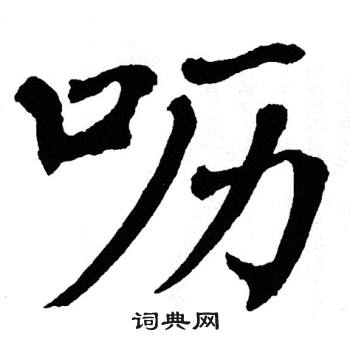 呖
词典网